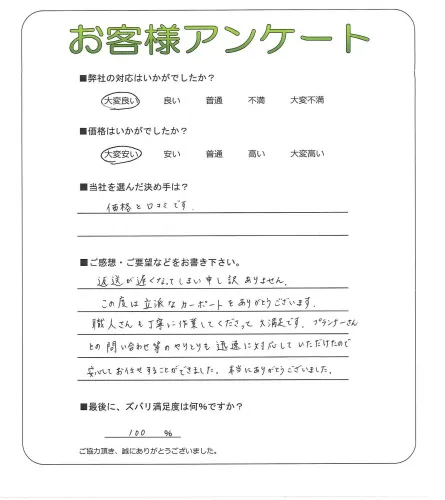 お客様アンケート
■弊社の対応はいかがでしたか？
大変良い 良い 普通 不満 大変不満
■価格はいかがでしたか？
大変安い 安い 普通 高い 大変高い
■当社を選んだ決め手は？
価格と口コミです。
■ご感想・ご要望などをお書き下さい。
返送が遅くなってしまい申し訳ありません。
この度は立派なカーポートをありがとうございます。
職人さんも丁寧に作業してくださって大満足です。プランナーさん
との問い合わせ等のやりとりも迅速に対応していただけたので
安心してお任せすることができました。本当にありがとうございました。
■最後に、ズバリ満足度は何%ですか？
100 %
ご協力頂き、誠にありがとうございました。